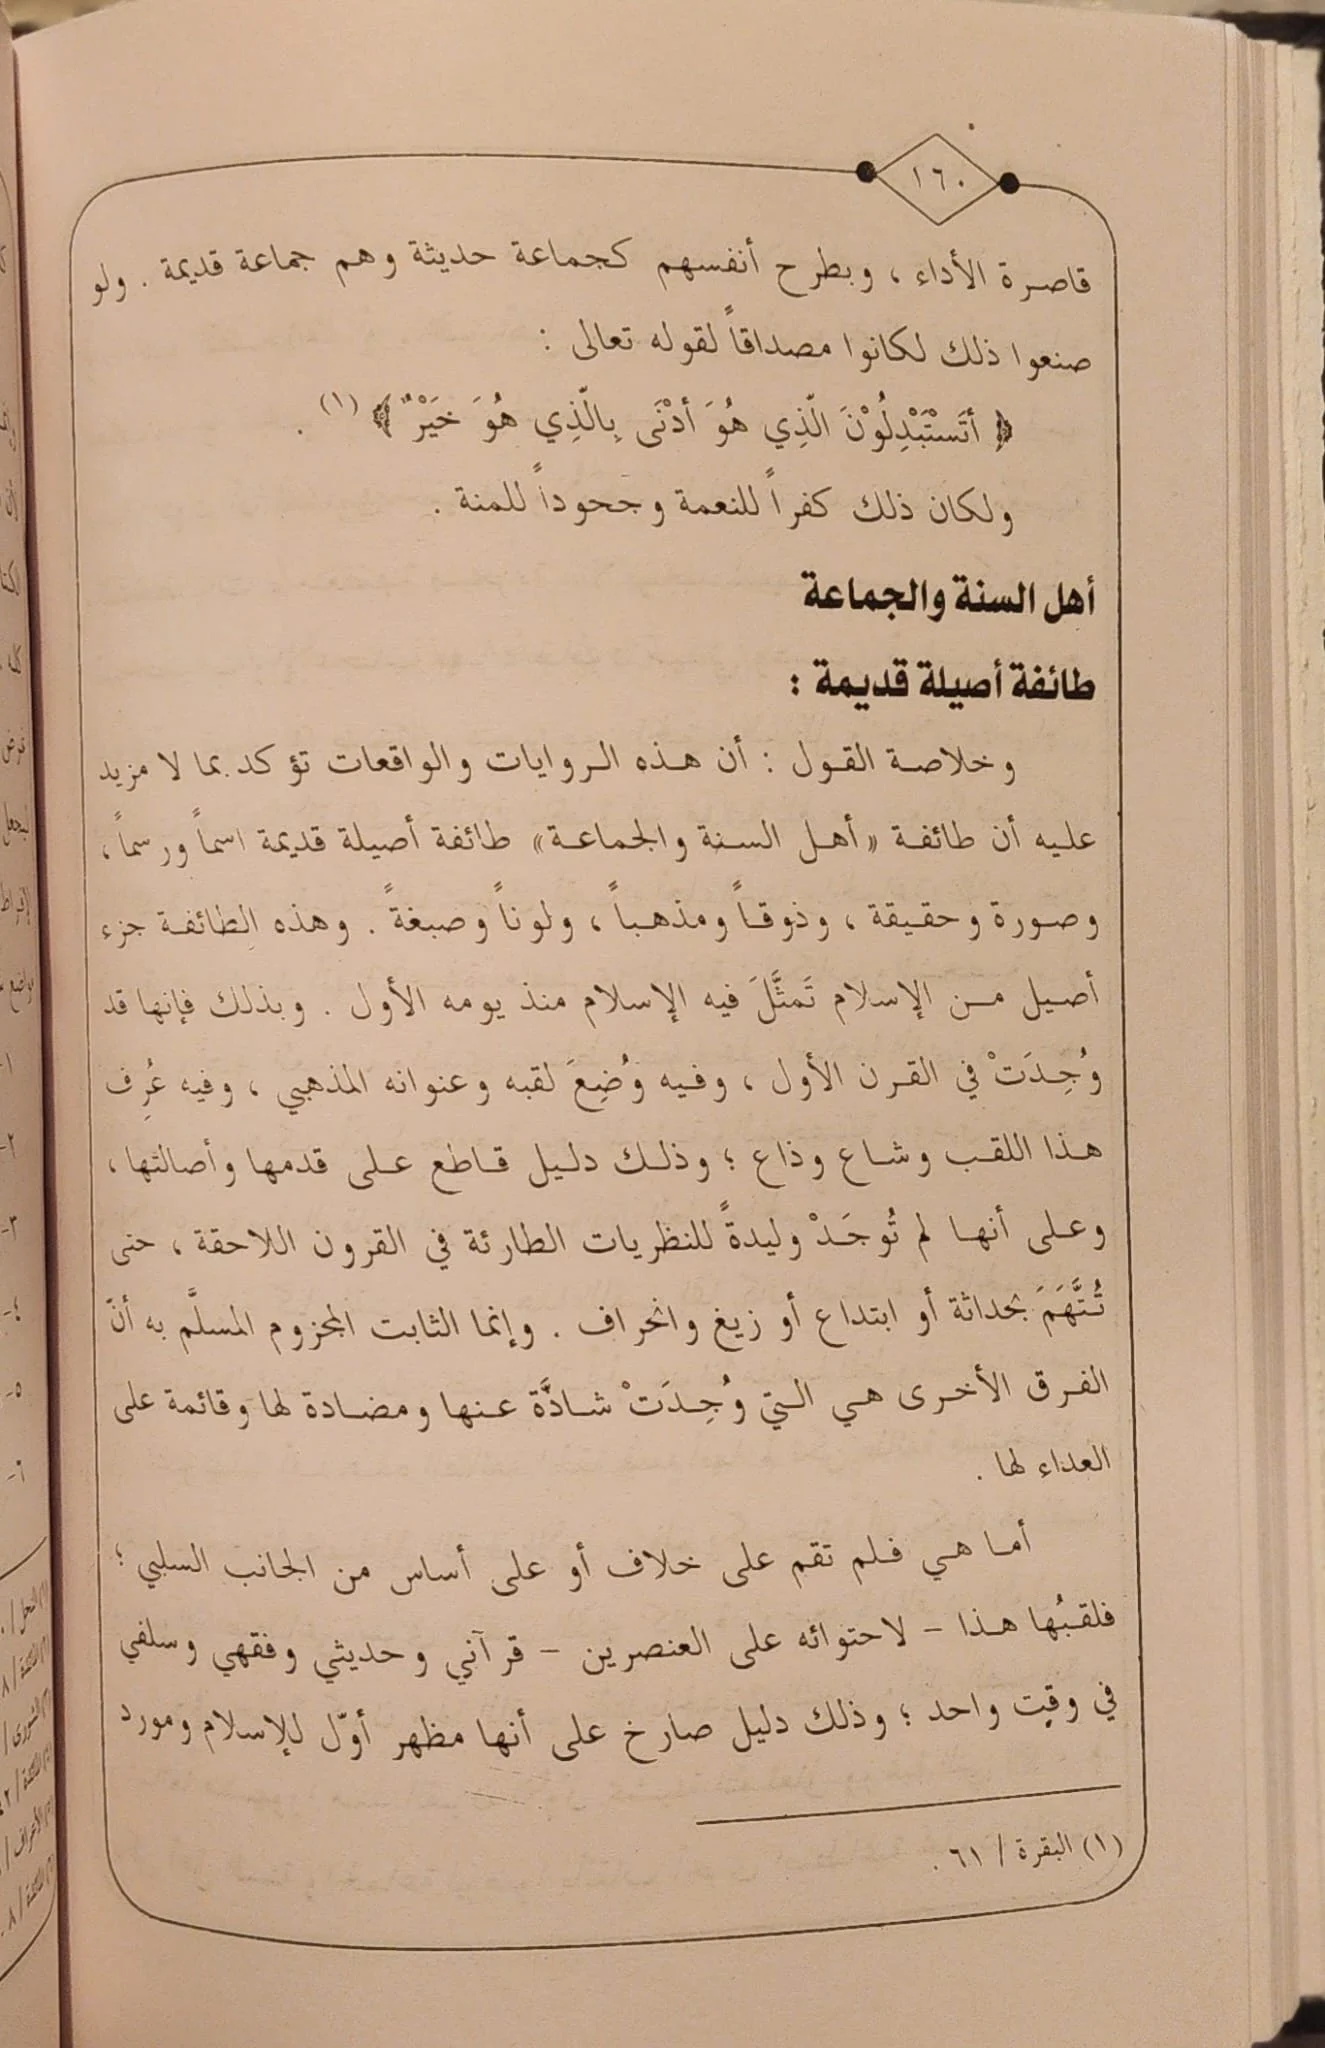 ١٦٠
قاصرة الأداء ، وبطرح أنفسهم كجماعة حديثة وهم جماعة قديمة . ولو
صنعوا ذلك لكانوا مصداقاً لقوله تعالى :
﴿ أتَسْتَبْدِلُوْنَ الّذِي هُوَ أدْنَى بِالّذِي هُوَ خَيْرٌ ﴾ (١) .
ولكان ذلك كفراً للنعمة وجحوداً للمنة .
أهل السنة والجماعة
طائفة أصيلة قديمة :
وخلاصة القول : أن هذه الروايات والواقعات تؤكد بما لا مزيد
عليه أن طائفة «أهل السنة والجماعة» طائفة أصيلة قديمة اسماً ورسماً ،
وصورة وحقيقة ، وذوقاً ومذهباً ، ولوناً وصبغةً . وهذه الطائفة جزء
أصيل من الإسلام تَمثَّلَ فيه الإسلام منذ يومه الأول . وبذلك فإنها قد
وُجِدَتْ في القرن الأول ، وفيه وُضِعَ لقبه وعنوانه المذهبي ، وفيه عُرِف
هذا اللقب وشاع وذاع ؛ وذلك دليل قاطع على قدمها وأصالتها ،
وعلى أنها لم تُوجَدْ وليدةً للنظريات الطارئة في القرون اللاحقة ، حتى
تُتَّهَمَ بحداثة أو ابتداع أو زيغ وانحراف . وإنما الثابت المجزوم المسلَّم به أنّ
الفرق الأخرى هي التي وُجِدَتْ شاذَّة عنها ومضادة لها وقائمة على
العداء لها .
أما هي فلم تقم على خلاف أو على أساس من الجانب السلبي ؛
فلقبُها هذا – لاحتوائه على العنصرين – قرآني وحديثي وفقهي وسلفي
في وقتٍ واحد ؛ وذلك دليل صارخ على أنها مظهر أوّل للإسلام ومورد
(١) البقرة / ٦١ .